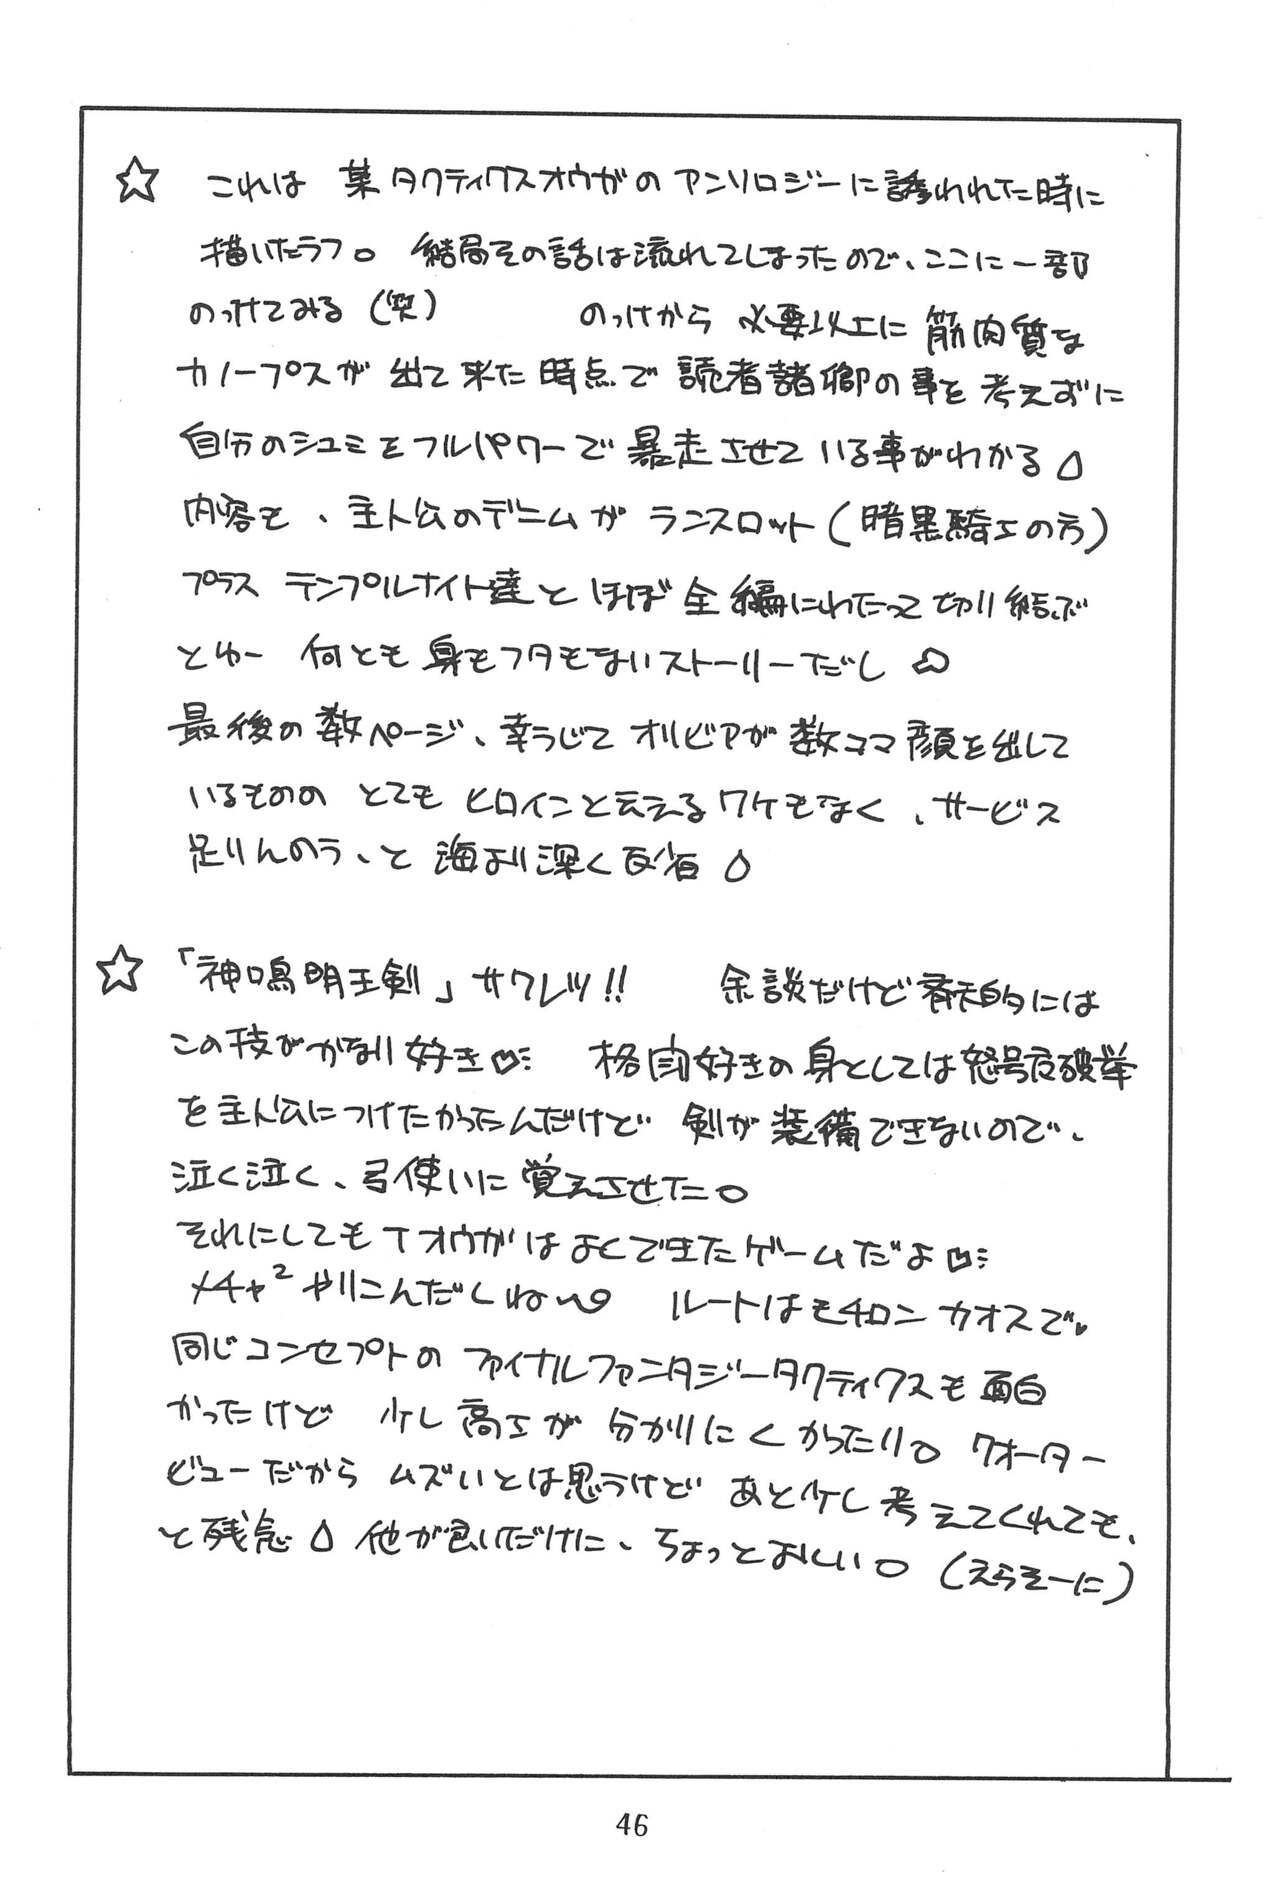 ☆ これは 某タクティクスオウガの アンソロジーに誘われた時に
描いたラフ。 結局その話は流れてしまったので、ここに一部
のっけてみる(笑) のっけから 必要以上に 筋肉質な
カノープスが 出て来た時点で 読者諸卿の事を 考えずに
自分のシュミを フルパワーで 暴走させて いる事がわかる
内容も、主人公のデニムが ランスロット(暗黒騎士の方)
プラス テンプルナイト達と ほぼ全編にわたって 切り結ぶ
とゆー 何とも 身もフタもないストーリーだし
最後の数ページ、辛うじて オリビアが 数コマ 顔を出して
いるものの とても ヒロインと云える ワケもなく、サービス
足りんのう、と 海より深く 反省
☆ 「神鳴明王剣」サクレツ!! 余談だけど 斉天的には
この技が かなり 好き♡ 格闘好きの 身としては怒号庄破拳
を主人公につけたかったんだけど 剣が 装備できないので、
泣く泣く、弓使いに 覚えさせた。
それにしても Tオウガは よくできたゲームだよ♡
メチャ² やりこんだしね〜 ルートはモチロン カオスで♥
同じコンセプトの ファイナルファンタジータクティクスも 面白
かったけど 少し高さが 分かりにくかったり。 クオーター
ビューだから ムズいとは思うけど あと少し 考えてくれても、
と残念 他が良いだけに、ちょっとおしい。 (えらそーに)
46